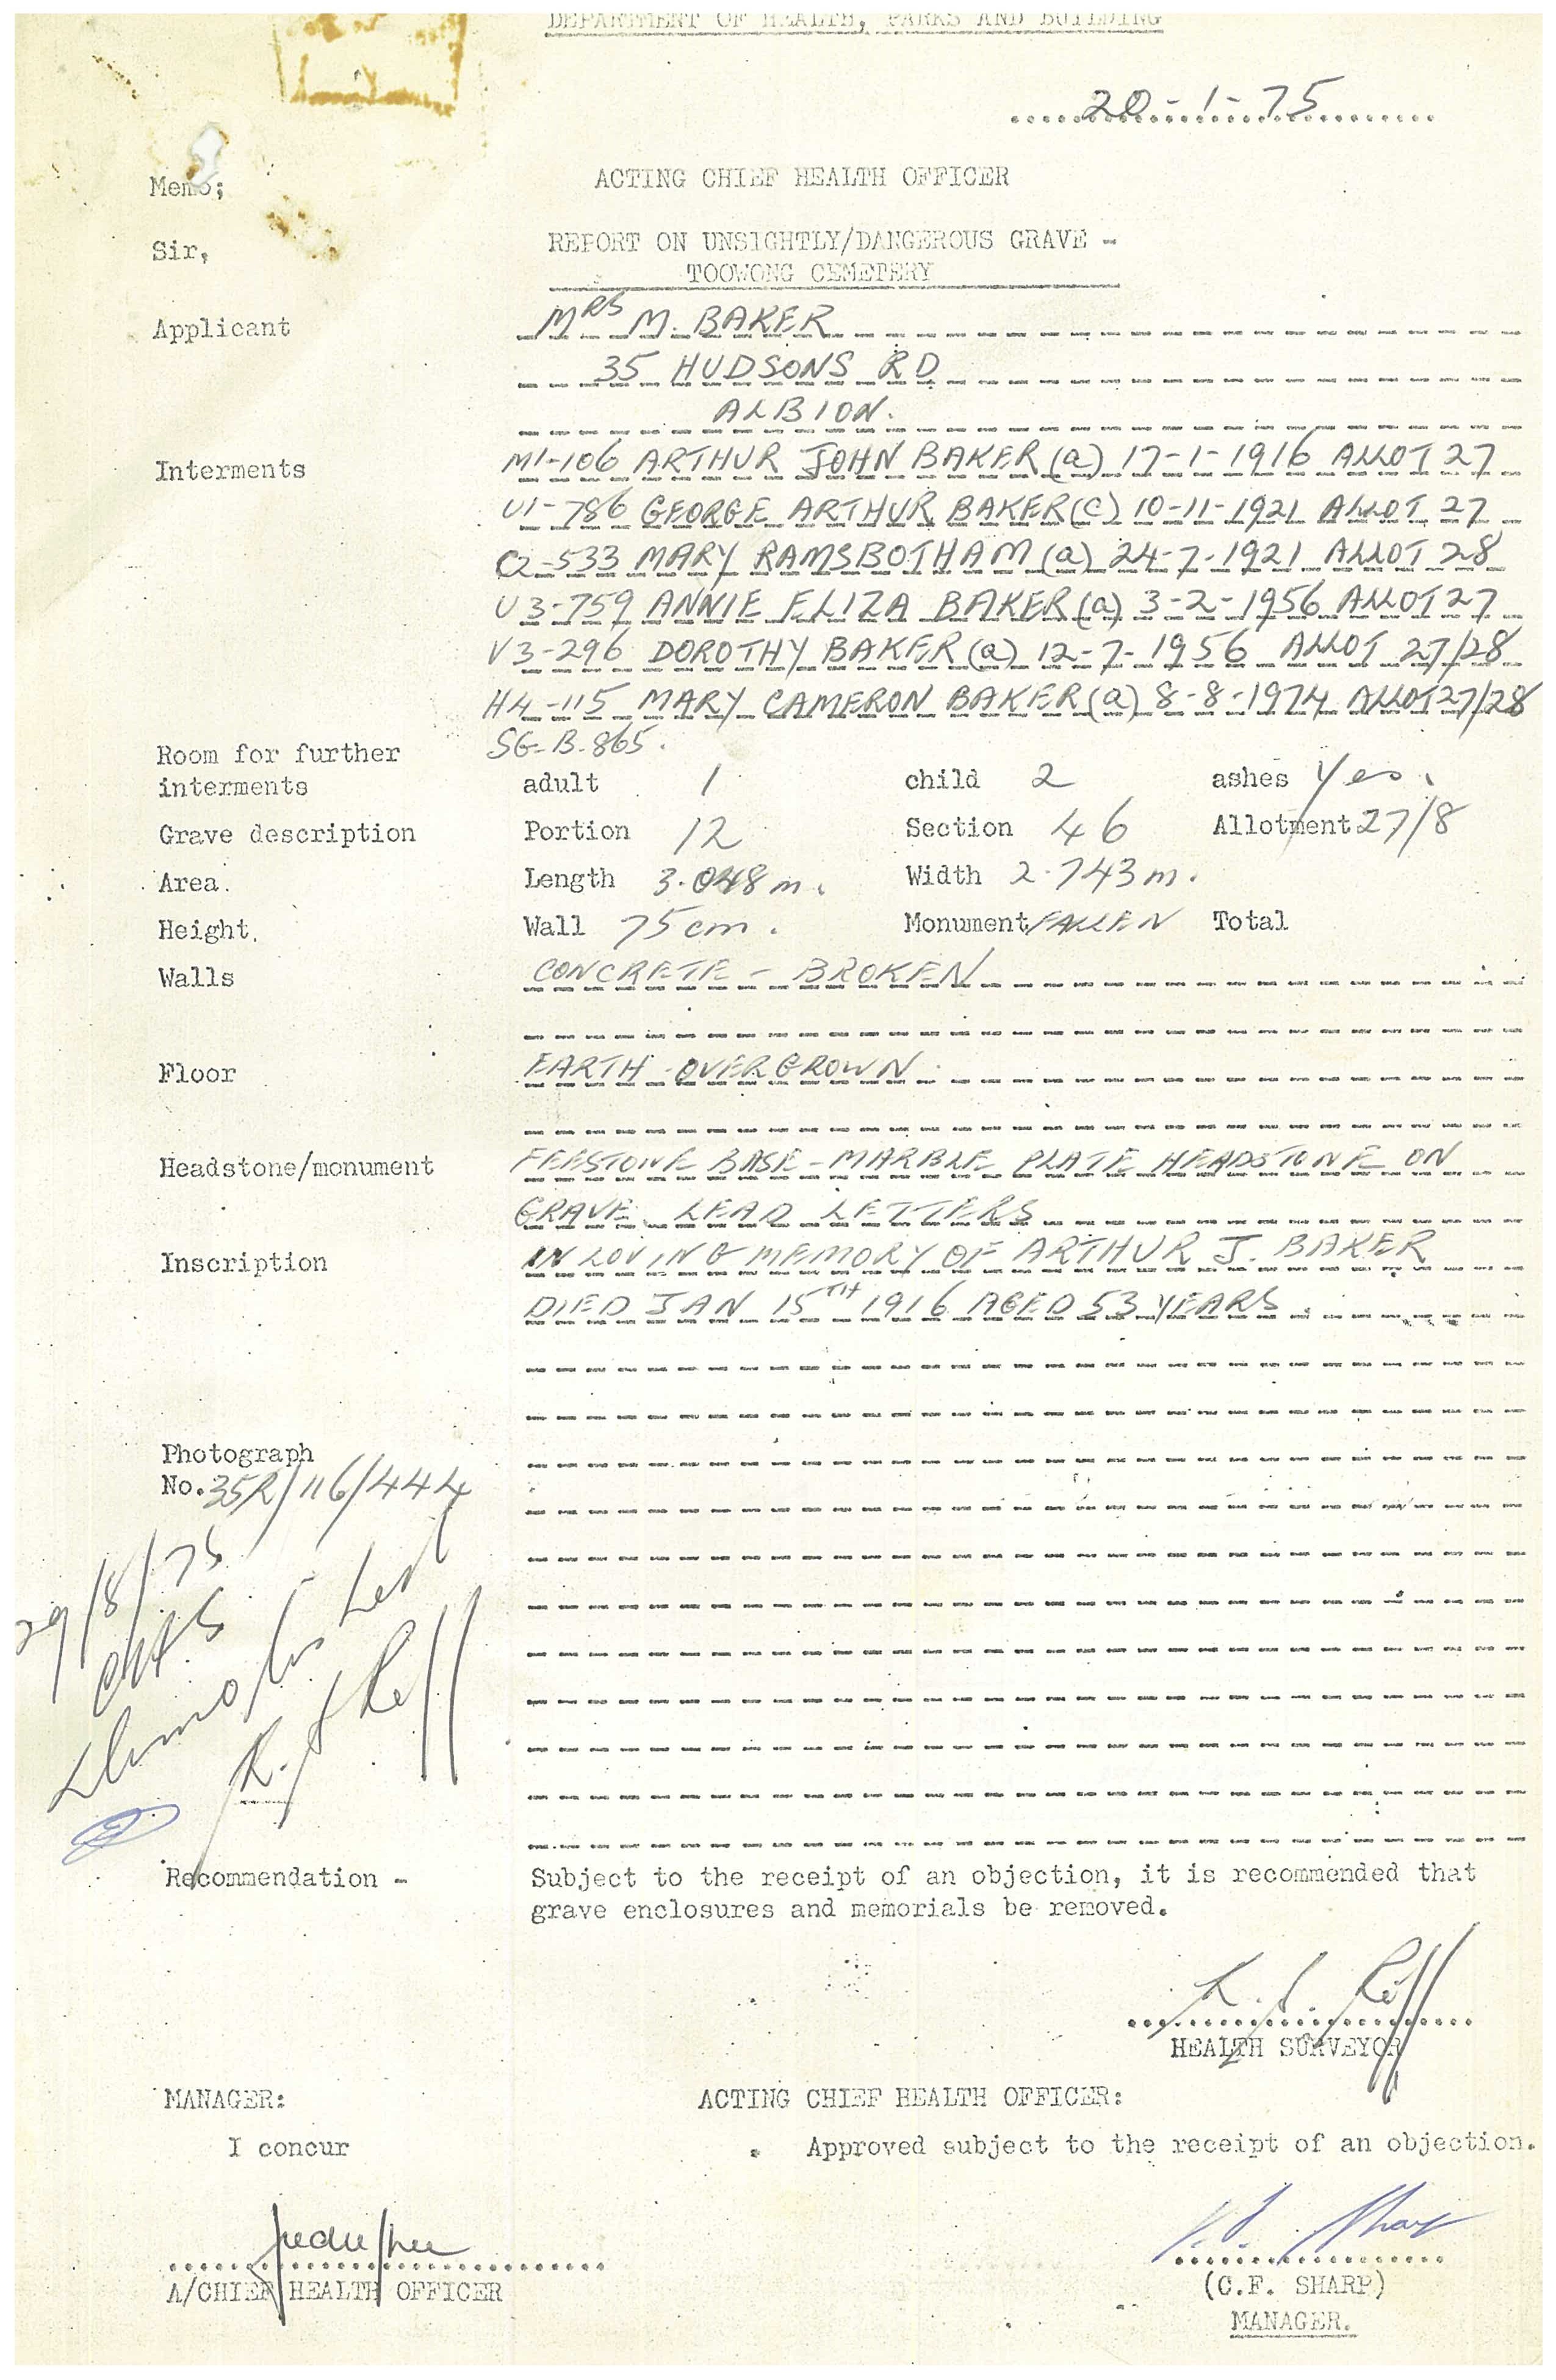 DEPARTMENT OF HEALTH, PARKS AND BUILDING
20-1-75
Memo; ACTING CHIEF HEALTH OFFICER
Sir, REPORT ON UNSIGHTLY/DANGEROUS GRAVE -
TOOWONG CEMETERY
Applicant MRS M. BAKER
35 HUDSONS RD
ALBION.
Interments M1-106 ARTHUR JOHN BAKER (a) 17-1-1916 ALLOT 27
U1-786 GEORGE ARTHUR BAKER (C) 10-11-1921 ALLOT 27
Q2-533 MARY RAMSBOTHAM (a) 24-7-1921 ALLOT 28
U3-759 ANNIE ELIZA BAKER (a) 3-2-1956 ALLOT 27
V3-296 DOROTHY BAKER (a) 12-7-1956 ALLOT 27/28
H4-115 MARY CAMERON BAKER (a) 8-8-1974 ALLOT 27/28
SG-B-865.
Room for further
interments adult 1 child 2 ashes Yes.
Grave description Portion 12 Section 46 Allotment 27/8
Area. Length 3.048 m. Width 2.743 m.
Height. Wall 75 cm. Monument FALLEN Total
Walls CONCRETE - BROKEN
Floor EARTH - OVERGROWN
Headstone/monument FEESTONE BASE - MARBLE PLATE HEADSTONE ON
GRAVE LEAD LETTERS
Inscription IN LOVING MEMORY OF ARTHUR J. BAKER
DIED JAN 15TH 1916 AGED 53 YEARS.
Photograph
No. 35R/116/444
29/8/75
Recommendation - Subject to the receipt of an objection, it is recommended that
grave enclosures and memorials be removed.
HEALTH SURVEYOR
MANAGER: ACTING CHIEF HEALTH OFFICER:
I concur Approved subject to the receipt of an objection.
A/CHIEF HEALTH OFFICER
(C.F. SHARP)
MANAGER.